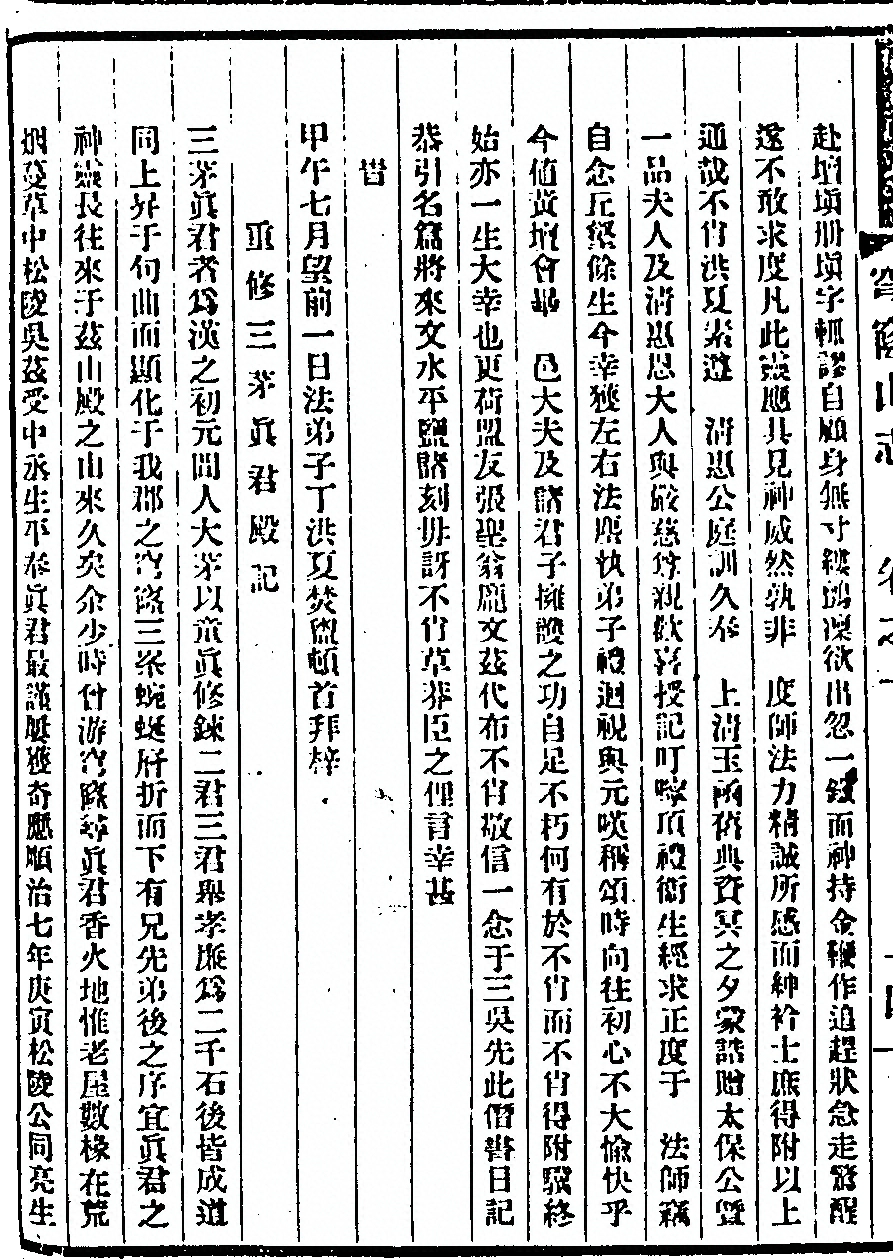 穹窿山志　卷之　十四
赴壇填册填字輒謬自顧身無寸縷鴆凜欲出忽一叙而神持金鞭作追趕狀急走驚醒
遂不敢求度凡此靈應具見神威然孰非　度師法力精誠所感而紳衿士庶得附以上
通哉不肖洪夏素遊　清惠公庭訓久奉　上淸玉函祕典資冥之夕蒙誥贈太保公曁
一品夫人及清惠恩大人與嚴慈尊親歡喜授記叮嚀頂禮衞生經求正度于　法師竊
自念丘壑餘生今幸獲左右法塵執弟子禮迴視與元嘆稱頌時向往初心不大愉快乎
今値黃壇會畢　邑大夫及諸君子擁護之功自足不朽何有於不肖而不肖得附驥終
始亦一生大幸也更荷盟友張聖翁龐文茲代布不肖敬信一念于三吳先此僭書日記
恭引名篇將來文水平鹽諸刻毋訝不肖草莽臣之俚言幸甚
旹
甲午七月望前一日法弟子丁洪夏焚盥頓首拜梓
重修三茅眞君殿記
三茅眞君者爲漢之初元間人大茅以童眞修鍊二君三君舉孝廉爲二千石後皆成道
同上昇于句曲而顯化于我郡之穹窿三峯蜿蜒屑折而下有兄先弟後之序宜眞君之
神靈長往來于茲山殿之由來久矣余少時曾游穹窿尋眞君香火地惟老屋數椽在荒
烟蔓草中松陵吳茲受中丞生平奉眞君最謹艇獲奇應順治七年庚寅松陵公同亮生